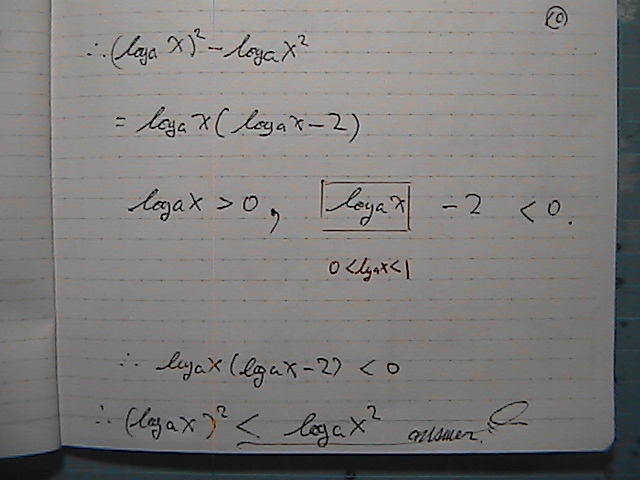 ⑩
∴ (logₐ x)² − logₐ x²
= logₐ x ( logₐ x − 2)
logₐ x > 0, logₐ x − 2 < 0.
0 < logₐ x < 1
∴ logₐ x (logₐ x − 2) < 0
∴ (logₐ x)² < logₐ x² answer.